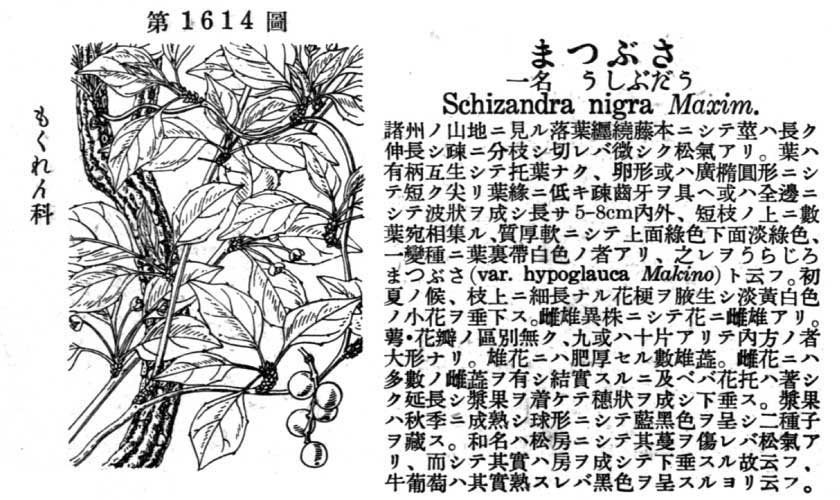 第1614圖
もくれん科
まつぶさ
一名 うしぶだう
Schizandra nigra Maxim.
諸州ノ山地ニ見ル落葉纒繞藤本ニシテ莖ハ長ク
伸長シ疎ニ分枝シ切レバ微シク松氣アリ。葉ハ
有柄互生シテ托葉ナク、卵形或ハ廣橢圓形ニシ
テ短ク尖リ葉緣ニ低キ疎齒牙ヲ具ヘ或ハ全邊ニ
シテ波狀ヲ成シ長サ5-8cm內外、短枝ノ上ニ數
葉宛相集ル、質厚軟ニシテ上面綠色下面淡綠色、
一變種ニ葉裏帶白色ノ者アリ、之レヲうらじろ
まつぶさ(var. hypoglauca Makino)ト云フ。初
夏ノ候、枝上ニ細長ナル花梗ヲ腋生シ淡黃白色
ノ小花ヲ垂下ス。雌雄異株ニシテ花ニ雌雄アリ。
萼・花瓣ノ區別無ク、九或ハ十片アリテ內方ノ者
大形ナリ。雄花ニハ肥厚セル數雄蕋。雌花ニハ
多數ノ雌蕋ヲ有シ結實スルニ及ベバ花托ハ著シ
ク延長シ漿果ヲ着ケテ穗狀ヲ成シ下垂ス。漿果
ハ秋季ニ成熟シ球形ニシテ藍黑色ヲ呈シ二種子
ヲ藏ス。和名ハ松房ニシテ其蔓ヲ傷レバ松氣ア
リ、而シテ其實ハ房ヲ成シテ下垂スル故云フ、
牛葡萄ハ其實熟スレバ黑色ヲ呈スルヨリ云フ。